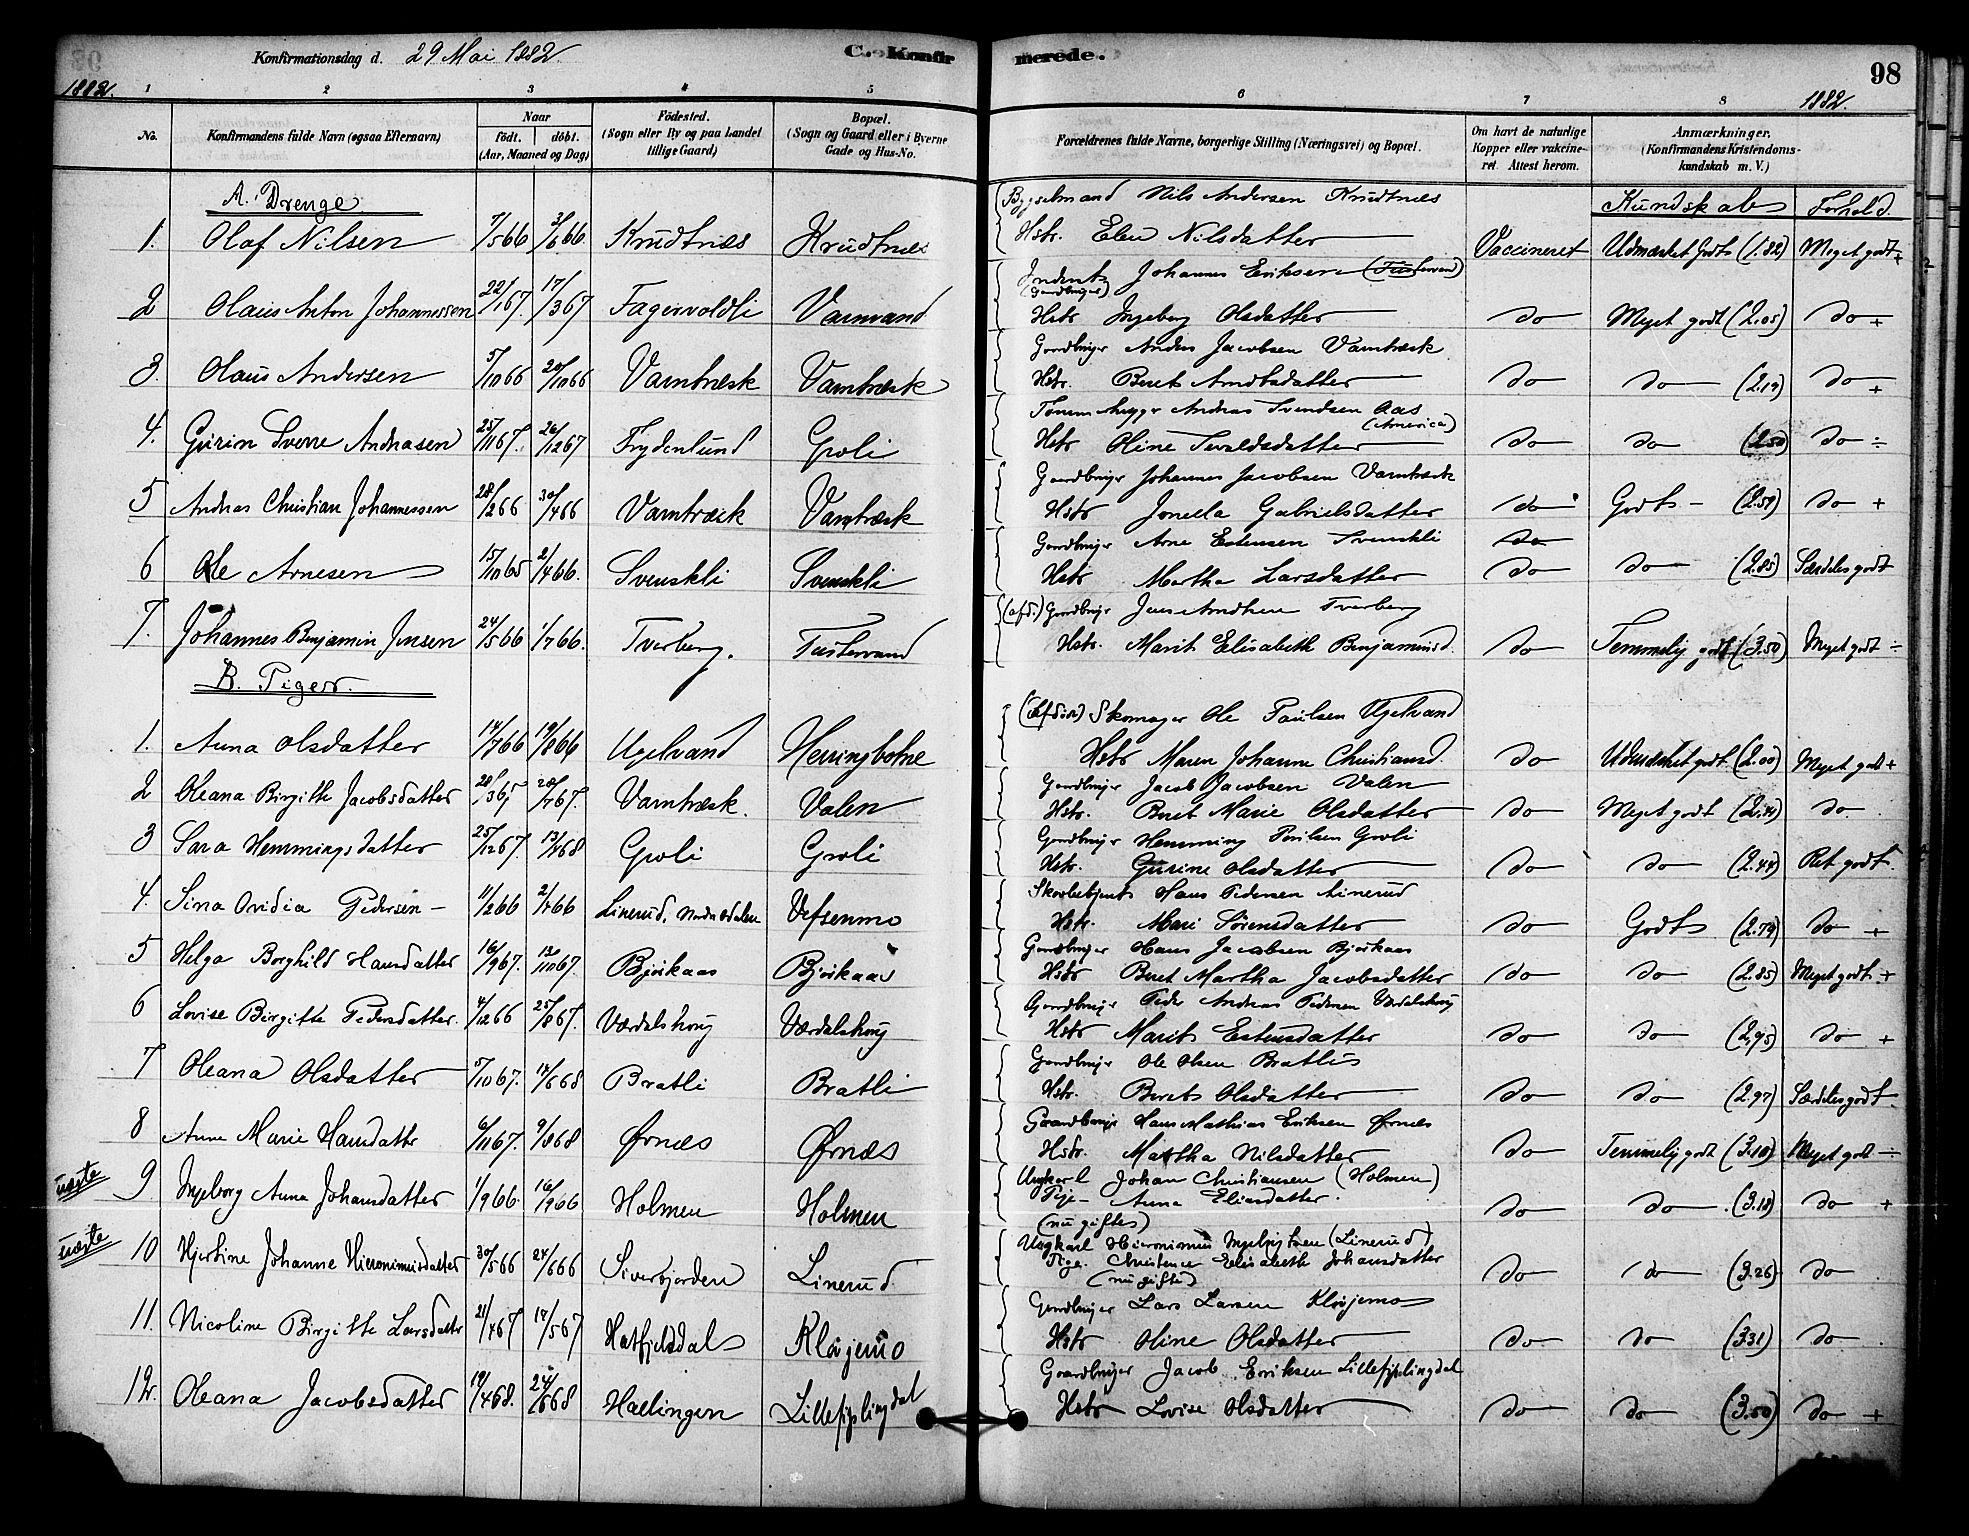 Konfirmationsdag d. 29 Mai 1882.
C. Konfirmerede.
98
1882.
1882.
1 2 3 4 5 6 7 8
No.
Konfirmandens fulde Navn (ogsaa Efternavn)
Naar
födt. döbt.
(Aar, Maaned og Dag)
Födested.
(Sogn eller By og paa Landet
tillige Gaard)
Bopæl.
(Sogn og Gaard eller i Byerne
Gade og Hus-No.
Forældrenes fulde Navne, borgerlige Stilling (Næringsvei) og Bopæl.
Om havt de naturlige
Kopper eller vakcineret
Attest herom.
Anmærkninger.
(Konfirmandens Kristendomskundskab
m. V.)
A. Drenge
Kundskab Forhold.
Bygselmand Nils Andersen Krudtnæs
1. Olaf Nilsen 7/5 66 3/6 66. Krudtnæs Krudtnæs Hstr. Elen Nilsdatter Vaccineret Udmærket Godt (1.82) Meget godt +
Inderst Johannes Eriksen (Tustervand)
(Gaardbruger)
2 Olaus Anton Johannessen 22/1 67. 17/3 67 Fagervoldli Vamvand Hstr Ingeborg Olsdatter do Meget godt (2.05) do +
Gaardbruger Anders Jacobsen Vamtræsk
3. Olaus Andersen 5/10 66 20/10 66 Vamtræsk Vamtræsk Hstr. Beret Arndtsdatter do do (2.19) do +
Tømmerhugger Andreas Svendsen Aas
(America)
4. Gurin Sverre Andreasen 25/11 67. 26/12 67 Frydenlund Groli Hstr Oline Tevaldsdatter do do (2.50) do ÷
Gaardbruger Johannes Jacobsen Vamtræsk
5 Andreas Christian Johannessen 28/2 66 30/4 66 Vamtræsk Vamtræsk Hstr Jonella Gabrielsdatter do Godt - (2.59) do +
Gaardbruger Arne Estensen Svenskli do
6 Ole Arnesen 15/10 65 2/4 66. Svenskli Svenskli Hstr Martha Larsdatter do do (2.85) Særdeles godt
(afd.) Gaardbruger Jens Arndtsen Tverberg
7. Johannes Benjamin Jensen 24/5 66 1/7 66. Tverberg. Tustervand Hstr. Marit Elisabeth Benjaminsd. do Temmelig godt (3.50) Meget godt ÷
B. Piger.
(Afdøde) Skomager Ole Paulsen Ugelvand
1. Anna Olsdatter 14/7 66 19/8 66 Ugelvand Herringbotne Hstr Maren Johanne Christiansd. do Udmærket godt (2.00) Meget godt +
Gaardbruger Jacob Jacobsen Valen
2 Oleana Birgitte Jacobsdatter Vamtræsk. Valen Hstr. Beret Marie Olsdatter do Meget godt do
Gaardbruger Hemming Poulsen Groli
3 Sara Hemmingsdatter 25/12 67. 13/4 68 Groli Groli Hstr. Gurine Olsdatter do do (2.44) Ret godt.
Skovbetjent Hans Pedersen Linerud
4. Sina Ovidia Pedersen - 11/2 66 2/4 66 Linerud. Vefsenmo Hstr. Mari Sørensdatter do Godt (2.79) do +
Gaardbruger Hans Jacobsen Bjørkaas
5 Helga Borghild Hansdatter 16/9 67. 13/10 67. Bjørkaas Bjørkaas Hstr Beret Martha Jacobsdatter do do (2.85) Meget godt +
Gaardbruger Peder Andreas Pedersen Værdalshoug
6 Lovise Birgitte Pedersdatter. 4/12 66 25/8 67. Værdalshoug Værdalshoug Hstr Marit Estensdatter do do (2.95) do +
Gaardbruger Ole Olsen Bratli
7 Oleana Olsdatter 5/10 67. 14/6 68 Bratli Bratli Hstr. Berets Olsdatter do do (2.97) Særdeles godt
Gaardbruger Hans Mathias Eriksen Ørnæs
8 Anne Marie Hansdatter 6/11 67. 9/8 68 Ørnæs Ørnæs Hstr. Martha Nilsdatter do Temmelig godt (3.10) Meget godt ÷
Ungkarl Johan Christiansen (Holmen)
uægte 9 Ingeborg Anna Johansdatter 1/9 66. 16/9 66 Holmen Holmen Pige Anna Eliasdatter. do do (3.18) do +
(nu gifte)
Ungkarl Hieronimus Ingebrigtsen (Linerud)
uægte 10 Hjertine Johanne Hieronimusdatter 30/5 66 24/6 66 Siverbjorden Linerud Pige. Christence Elisabeth Johansdatter do do (3.26) do
(nu gifte)
Gaardbruger Lars Larsen Kløjemo
11. Nicoline Birgitte Larsdatter 21/4 67 14/5 67 Hatfjelddal Kløjemo Hstr Oline Olsdatter do do (3.31) do
Gaardbruger Jacob Eriksen Lillefjplingdal
12. Oleana Jacobsdatter 19/4 68. 24/6 68 Hællingen Lillefjplingdal Hstr Lovise Olsdatter do do (3.50) do +